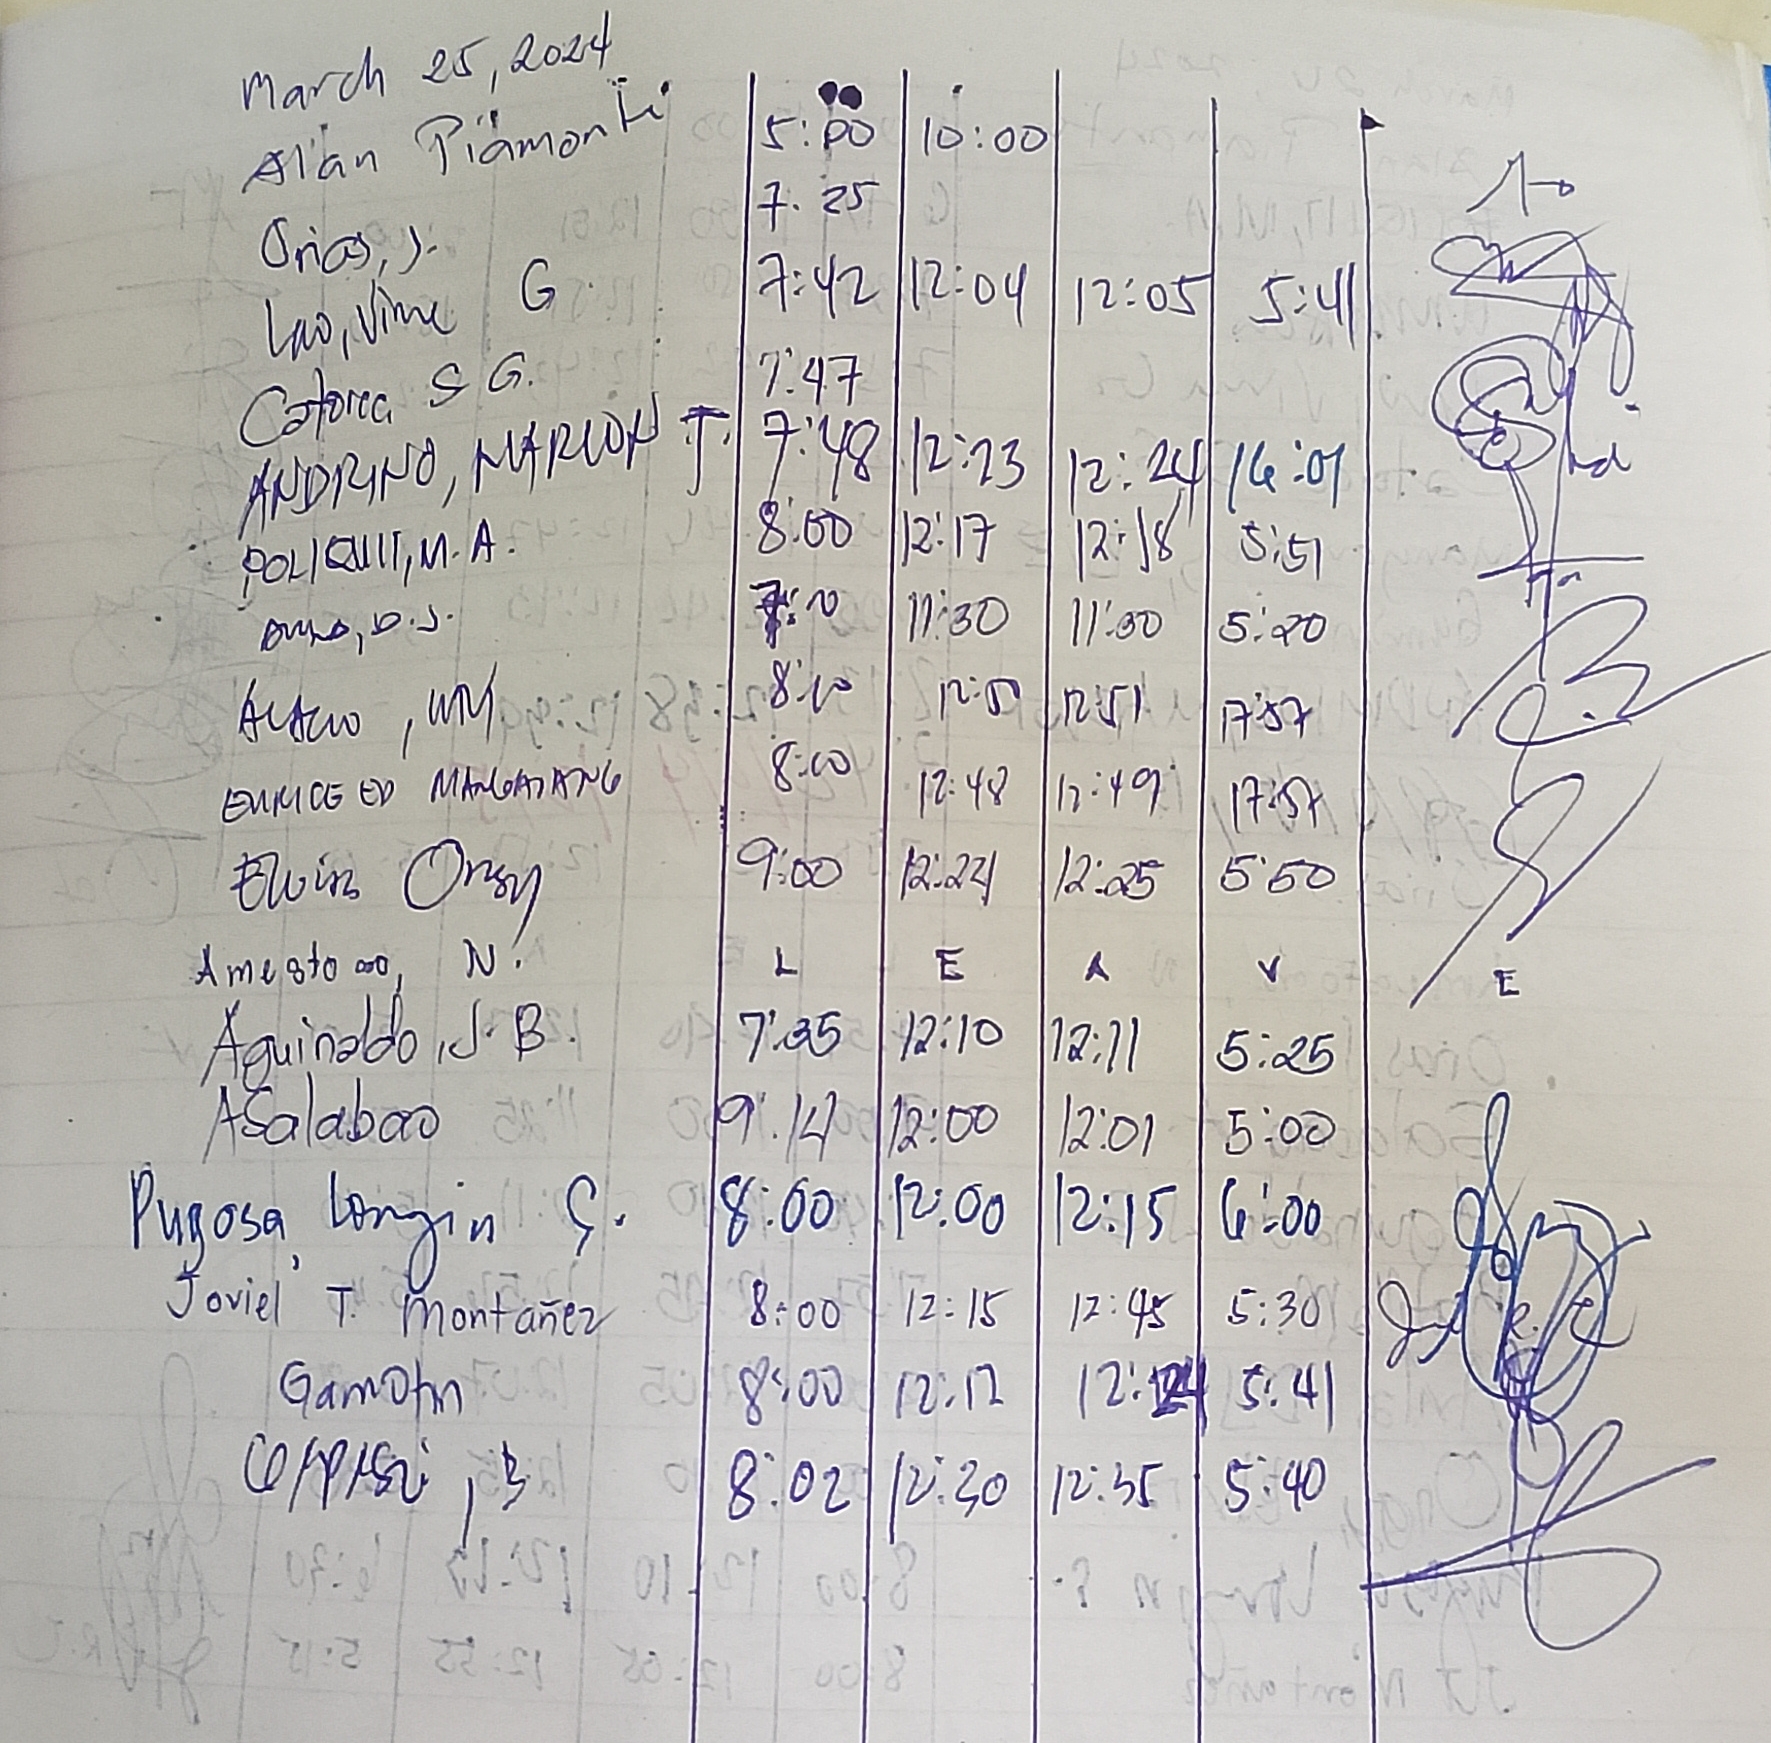 March 25, 2024
Alan Piamonti 5:00 10:00
Orias, J. 7:25
Lao, Vime G. 7:42 12:04 12:05 5:41
Catorca S G. 7:47
ANDRINO, MARLON J. 7:48 12:23 12:24 16:01
POLIQUIT, M.A. 8:00 12:17 12:18 5:51
D.J. 11:30 11:30 5:20
ALACIO, 8:00 12:50 12:51 17:57
EUNICE ED MANGATANG 8:00 12:48 12:49 17:57
Elvira Ongy 9:00 12:24 12:25 5:50
Amestoso, N. L E A V E
Aguinaldo, J. B. 7:35 12:10 12:11 5:25
ASalabao 9:14 12:00 12:01 5:00
Pugosa, Longin S. 8:00 12:00 12:15 6:00
Joviel T. Montañez 8:00 12:15 12:45 5:30
Gamotin 8:00 12:12 12:24 5:41
8:02 12:30 12:35 5:40